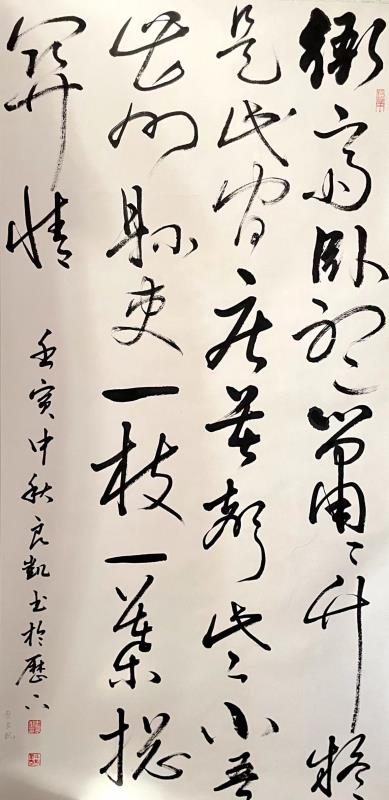 衙齋臥聽蕭〻竹疑
是民間疾苦聲些小吾
曹州縣吏一枝一葉總
關情
壬寅中秋良凱書於歷下